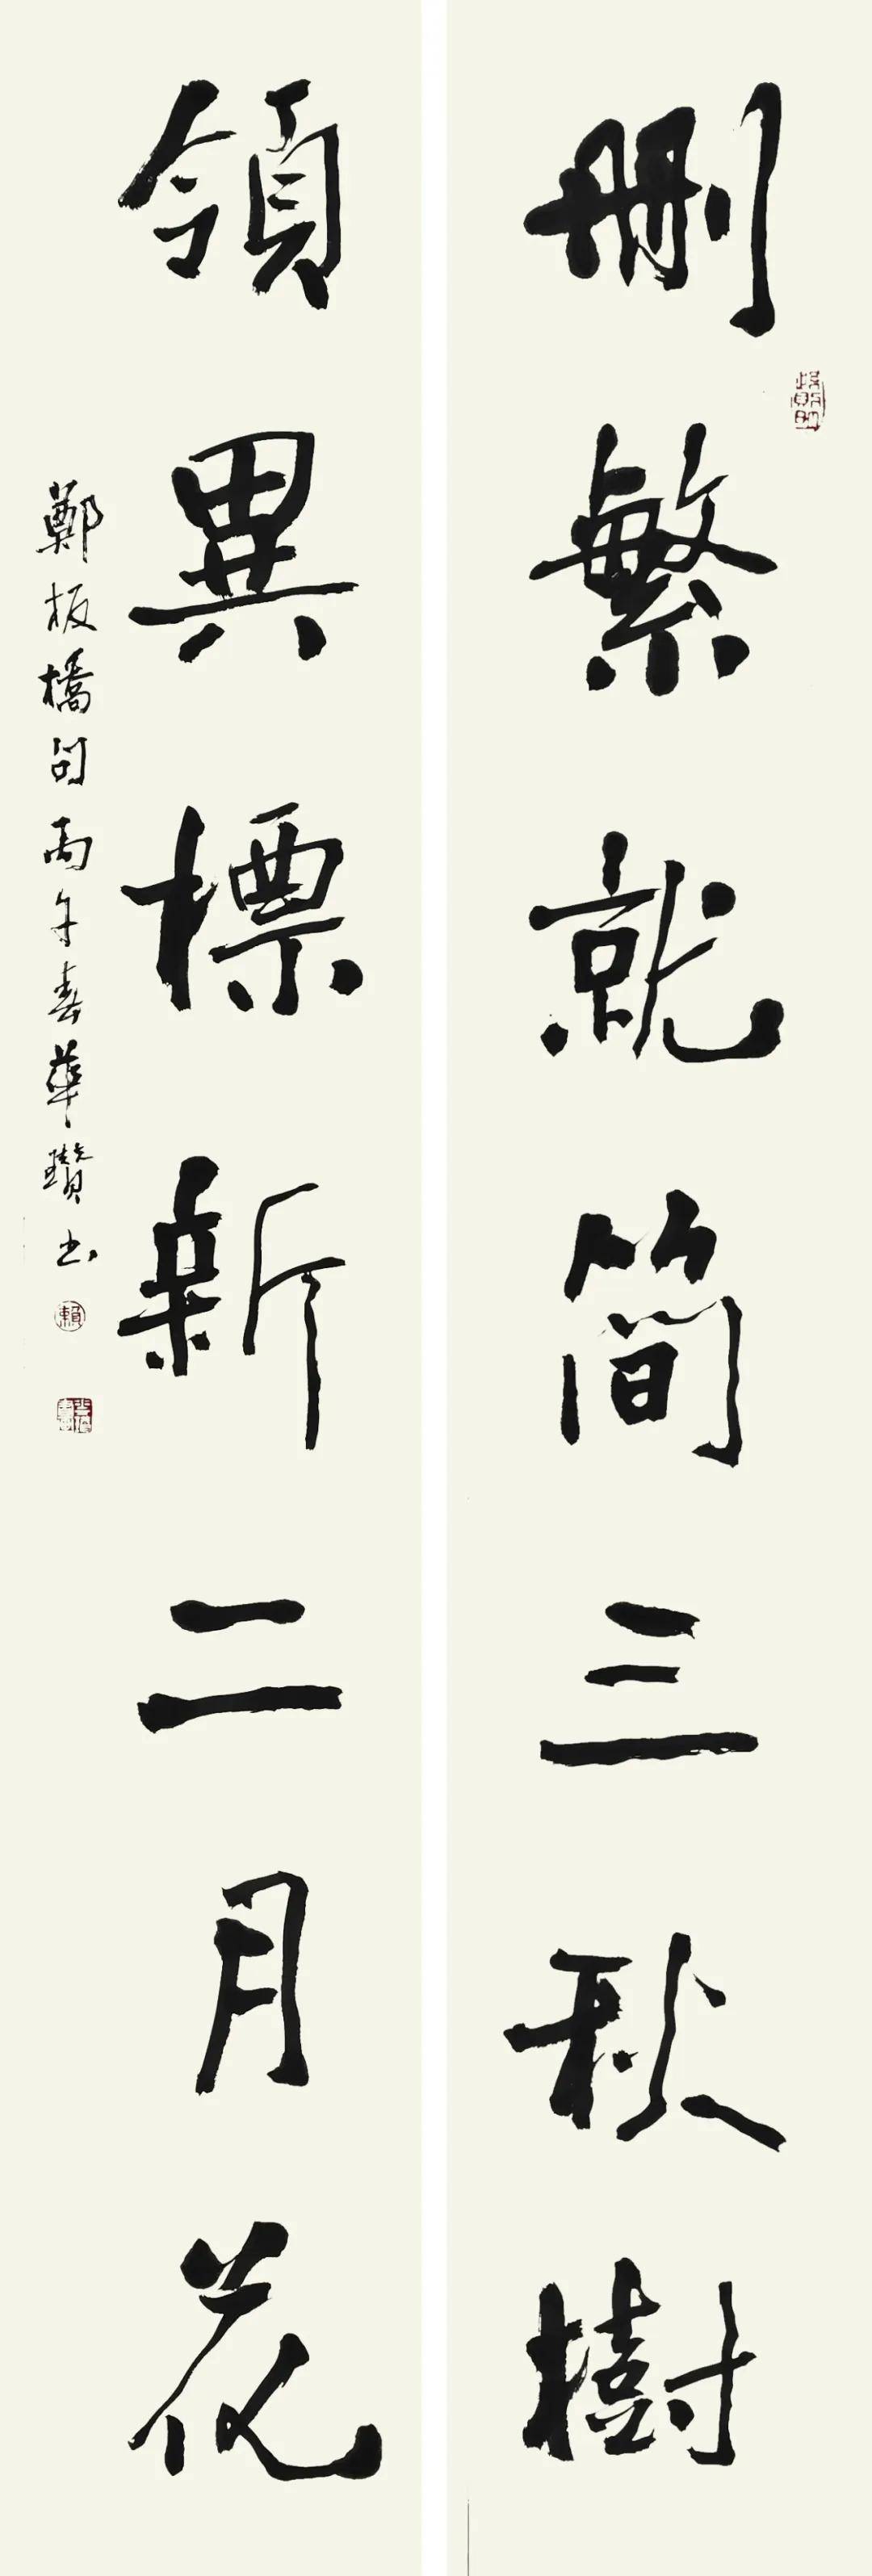 刪繁就簡三秋樹
領異標新二月花
鄭板橋句丙午春華瓚书
賴